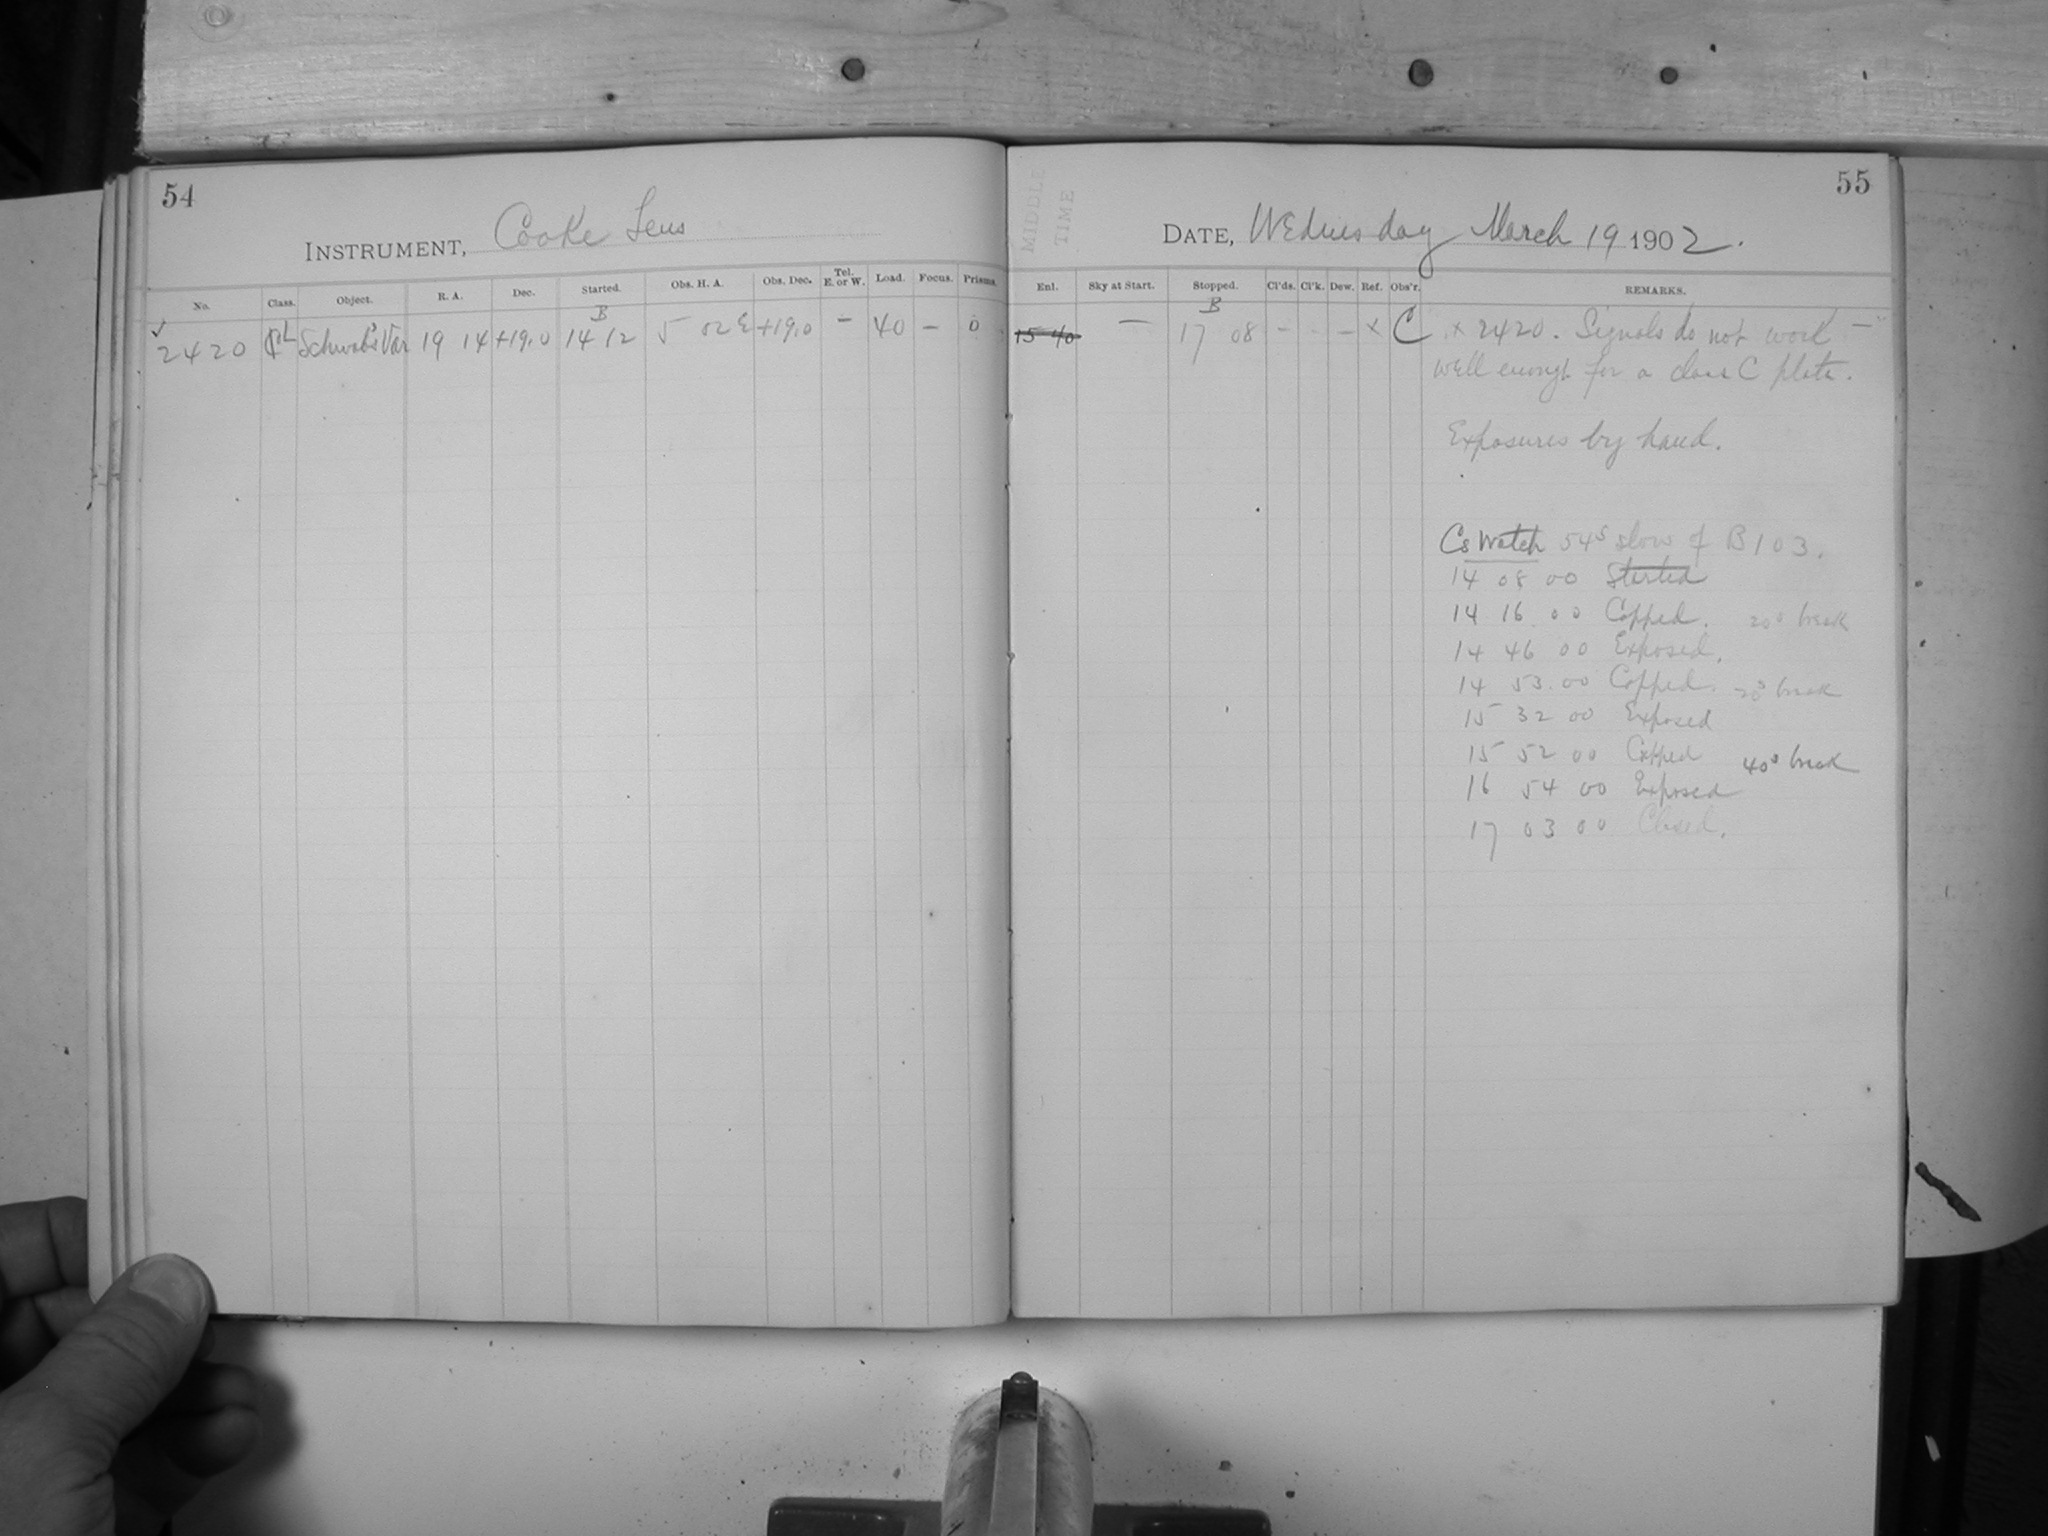 54
INSTRUMENT, Cooke Lens
No. Class. Object. R. A. Dec. Started. Obs. H. A. Obs. Dec. Tel. E. or W. Load. Focus. Prisms.
B
✓ 2420 L Schwab's Var 19 14 +19.0 14 12 5 02 E +19.0 – 40 – 0
55
MIDDLE TIME
DATE, Wednesday March 19 1902.
Enl. Sky at Start. Stopped. Cl'ds. Cl'k. Dew. Ref. Obs'r. REMARKS.
B
15 40 – 17 08 – – × C × 2420. Signals do not work –
well enough for a class C plate.
Exposures by hand.
Cs Watch 54s slow of B 103.
14 08 00 Started
14 16 00 Capped. 20s break
14 46 00 Exposed.
14 53 00 Capped. 20s break
15 32 00 Exposed
15 52 00 Capped 40s break
16 54 00 Exposed
17 03 00 Closed.